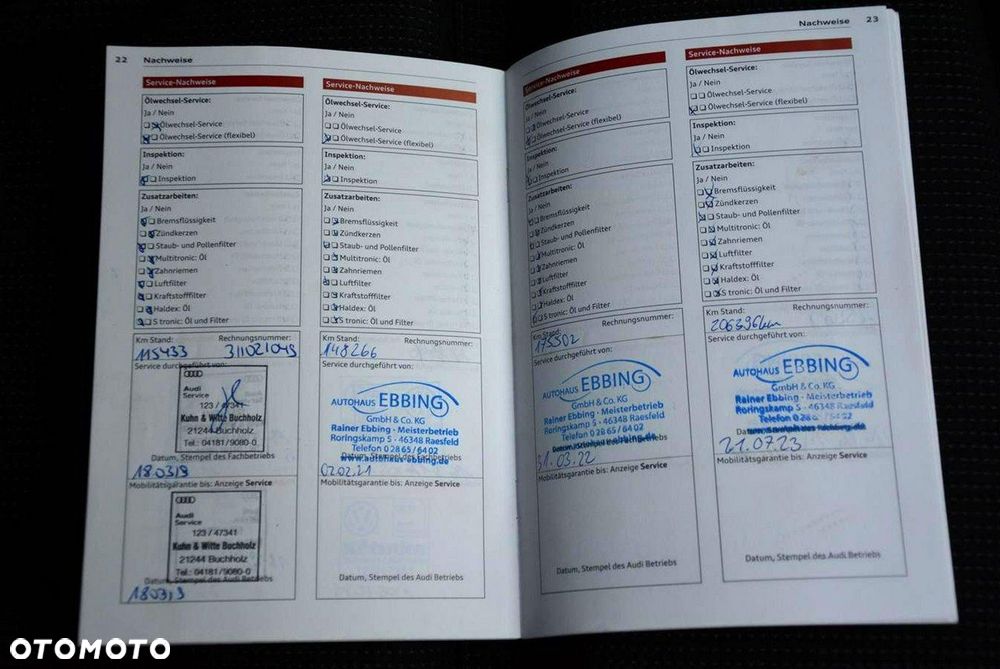 22 Nachweise
Service-Nachweise
Ölwechsel-Service:
Ja / Nein
Ölwechsel-Service
Ölwechsel-Service (flexibel)
Inspektion:
Ja / Nein
Inspektion
Zusatzarbeiten:
Ja / Nein
Bremsflüssigkeit
Zündkerzen
Staub- und Pollenfilter
Multitronic: Öl
Zahnriemen
Luftfilter
Kraftstofffilter
Haldex: Öl
S tronic: Öl und Filter
Km Stand: Rechnungsnummer:
115433 311021049
Service durchgeführt von:
Audi
Service
123 / 47341
Kuhn & Witte Buchholz
21244 Buchholz
Tel.: 04181/9080-0
Datum, Stempel des Fachbetriebs
Mobilitätsgarantie bis: Anzeige Service
Audi
Service
123 / 47341
Kuhn & Witte Buchholz
21244 Buchholz
Tel.: 04181/9080-0
Datum, Stempel des Audi Betriebs
Service-Nachweise
Ölwechsel-Service:
Ja / Nein
Ölwechsel-Service
Ölwechsel-Service (flexibel)
Inspektion:
Ja / Nein
Inspektion
Zusatzarbeiten:
Ja / Nein
Bremsflüssigkeit
Zündkerzen
Staub- und Pollenfilter
Multitronic: Öl
Zahnriemen
Luftfilter
Kraftstofffilter
Haldex: Öl
S tronic: Öl und Filter
Km Stand: Rechnungsnummer:
148266
Service durchgeführt von:
AUTOHAUS EBBING
GmbH & Co. KG
Rainer Ebbing - Meisterbetrieb
Roringskamp 5 - 46348 Raesfeld
Telefon 0 28 65 / 64 02
Datum, Stempel des Fachbetriebs
www.autohaus-ebbing.de
02.02.21
Mobilitätsgarantie bis: Anzeige Service
Datum, Stempel des Audi Betriebs
Nachweise 23
Service-Nachweise
Ölwechsel-Service:
Ja / Nein
Ölwechsel-Service
Ölwechsel-Service (flexibel)
Inspektion:
Ja / Nein
Inspektion
Zusatzarbeiten:
Ja / Nein
Bremsflüssigkeit
Zündkerzen
Staub- und Pollenfilter
Multitronic: Öl
Zahnriemen
Luftfilter
Kraftstofffilter
Haldex: Öl
S tronic: Öl und Filter
Km Stand: Rechnungsnummer:
175502
Service durchgeführt von:
AUTOHAUS EBBING
GmbH & Co. KG
Rainer Ebbing - Meisterbetrieb
Roringskamp 5 - 46348 Raesfeld
Telefon 0 28 65 / 64 02
31.03.22
Mobilitätsgarantie bis: Anzeige Service
Datum, Stempel des Audi Betriebs
Service-Nachweise
Ölwechsel-Service:
Ja / Nein
Ölwechsel-Service
Ölwechsel-Service (flexibel)
Inspektion:
Ja / Nein
Inspektion
Zusatzarbeiten:
Ja / Nein
Bremsflüssigkeit
Zündkerzen
Staub- und Pollenfilter
Multitronic: Öl
Zahnriemen
Luftfilter
Kraftstofffilter
Haldex: Öl
S tronic: Öl und Filter
Km Stand: Rechnungsnummer:
206396km
Service durchgeführt von:
AUTOHAUS EBBING
GmbH & Co. KG
Rainer Ebbing - Meisterbetrieb
Roringskamp 5 - 46348 Raesfeld
Telefon 0 28 / 64 02
21.07.23
Mobilitätsgarantie bis: Anzeige Service
Datum, Stempel des Audi Betriebs
OTOMOTO